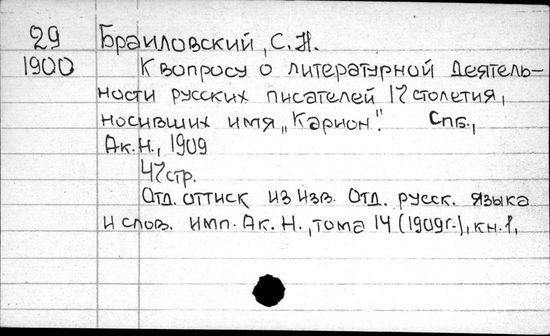 29 Браиловский, С. Н.
1900 К вопросу о литературной деятель-
ности русских писателей 17 столетия,
носивших имя „Карион". Спб.,
Ак. Н., 1909
47 стр.
Отд. оттиск из Изв. Отд. русск. языка
и слов. имп. Ак. Н., тома 14 (1909г.), кн. 1,